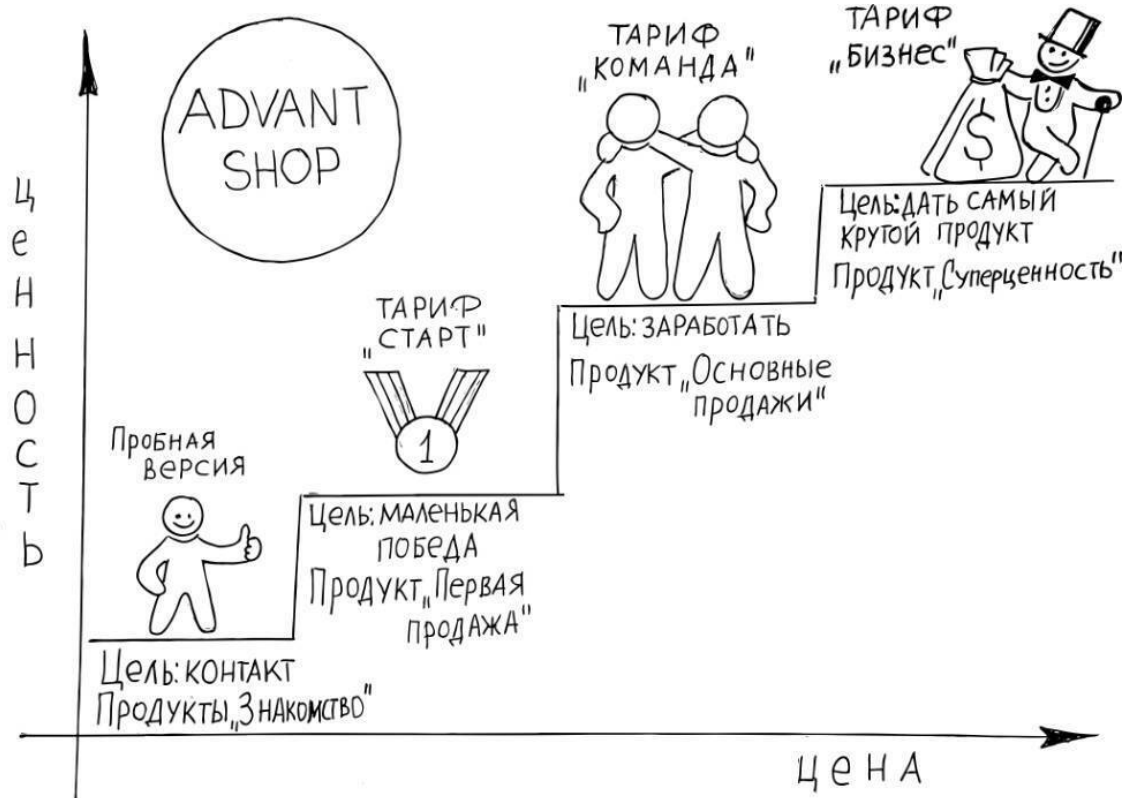 ADVANT
SHOP
ЦеННОСТЬ
ПРОБНАЯ
Версия
Цель: КОНТАКТ
Продукты „Знакомство"
ТАРИФ
„СТАРТ"
Цель: МАЛЕНЬКАЯ
ПОБЕДА
Продукт „Первая
продажа"
1
ТАРИФ
„КОМАНДА"
Цель: ЗАРАБОТАТЬ
Продукт „Основные
продажи"
ТАРИФ
„БИЗНЕС"
$
Цель: ДАТЬ САМЫЙ
КРУТОЙ ПРОДУКТ
Продукт „Суперценность"
ЦеНА